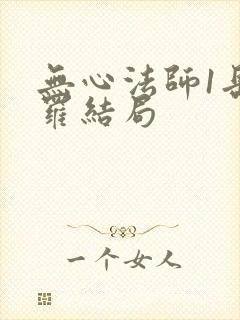 無心法師1岳綺
羅結局
一个女人